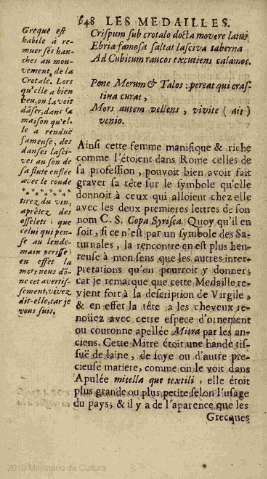 648 LES MEDAILLES.
Greque est
habile à re-
muer ses han-
ches au mou-
vement, de la
Crotale. Lors
qu'elle a bien
beu, on la voit
dãser, dans la
maison qu'el-
le a renduë
fameuse, des
danses lasci-
ves au son de
sa flute enflée
avec le coude
tirez du vin,
aprêtez des
osselets: que
celui qui pen-
se au lende-
main perisse
en effet la
mort nous dõ-
ne cet avertis-
sement, vivez
dit-elle, car je
vous suis,
Crispum sub crotalo docta movere latus
Ebria famosa saltat lasciva taberna
Ad Cubitum raucos excutiens calamos.
Pone Merum & Talos; pereat qui cras-
tina curat,
Mors autem vellens, vivite (ait)
venio.
Ainsi cette femme manifique & riche
comme l'étoient dans Rome celles de
sa profession, pouvoit bien avoir fait
graver sa tête sur le symbole qu'elle
donnoit à ceux qui alloient chez elle
avec les deux premieres lettres de son
nom C. S. Copa Syrisca. Quoy qu'il en
soit, si ce n'est par un symbole des Sa-
turnales, la rencontre en est plus heu-
reuse à mon sens que les autres inter-
pretations qu'on pourroit y donner,
car je remarque que cette Medaille re-
vient fort à la description de Virgile,
& en effet la tête a les cheveux re-
noüez avec cette espece d'ornement
ou couronne apellée Mitra par les an-
ciens. Cette Mitre étoit une bande tis-
suë de laine, de soye ou d'autre pre-
cieuse matiere, comme on le voit dans
Apulée mitella que textili, elle étoit
plus grande ou plus petite selon l'usage
du pays, & il y a de l'aparence que les
Grecques
2010 Ministerio de Cultura